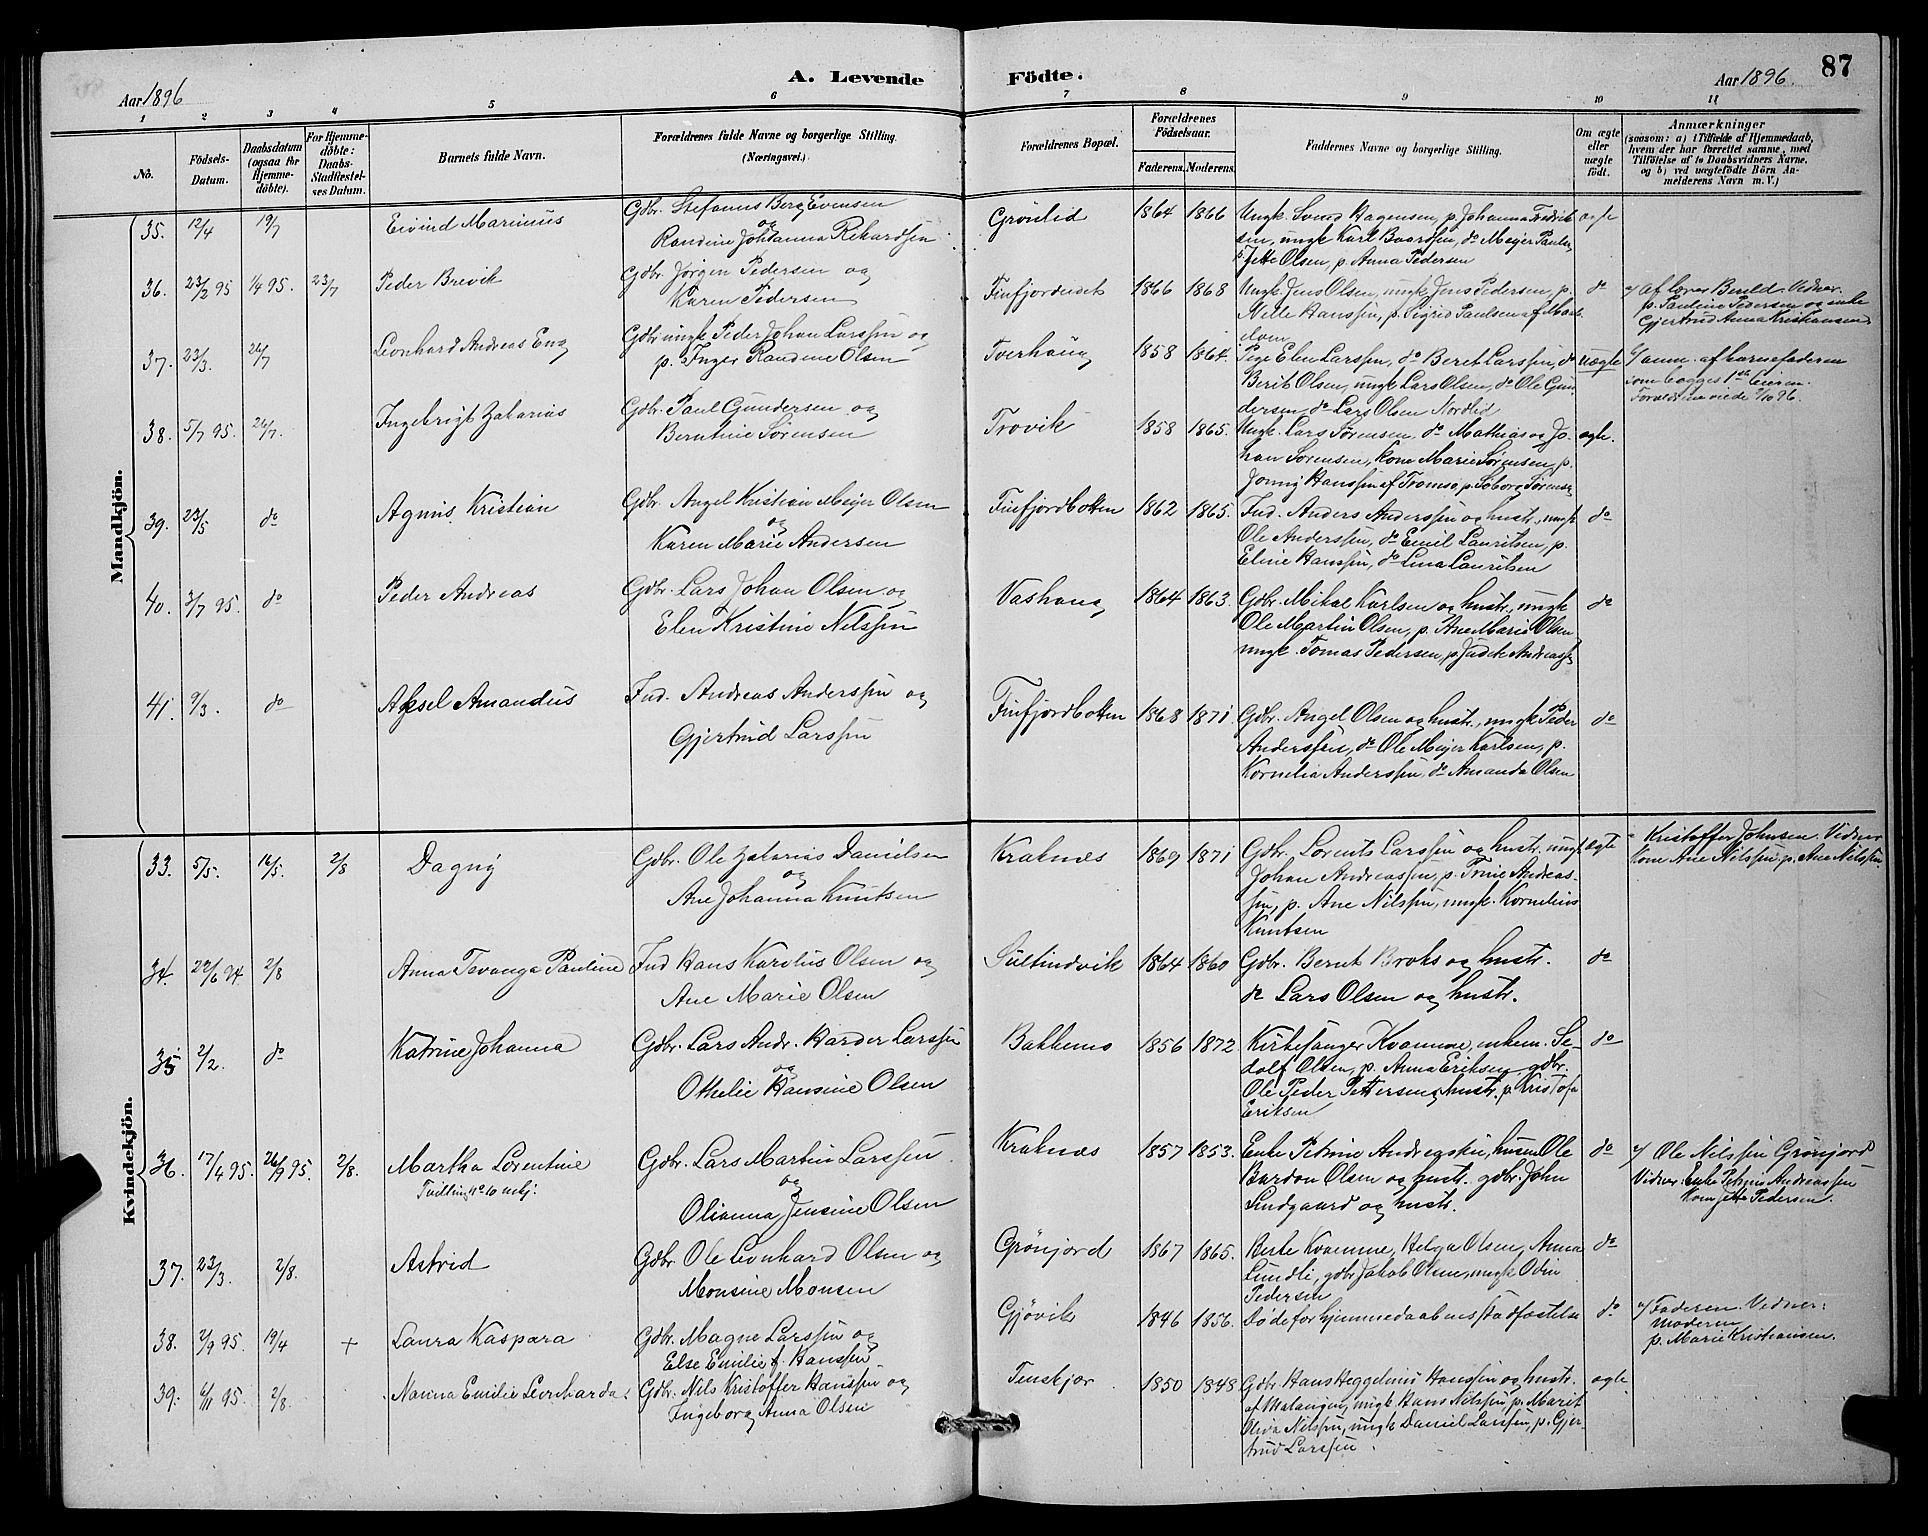 Aar 1896 A. Levende Födte. Aar 1896. 87
1 2 3 4 5 6 7 8 9 10 11
No.
Födsels-Datum.
Daabsdatum (ogsaa för Hjemme-döbte).
For Hjemme-döbte: Daabs-Stadfæstel-ses Datum.
Barnets fulde Navn.
Forældrenes fulde Navne og borgerlige Stilling. (Næringsvei.)
Forældrenes Bopæl.
Forældrenes Födselsaar.
Faderens. Moderens.
Faddernes Navne og borgerlige Stilling.
Om ægte eller uægte födt.
Anmærkninger
(saasom: a) i Tilfælde af Hjemmedaab,
hvem der har forrettet samme, med
Tilföielse af to Daabsvidners Navne.
og b) ved uægtefödte Börn An-
melderens Navn m. V.)
Mandkjön.
35. 12/4 19/7 Eivind Marinius
Gdbr. Stefanus Berg Evensen
og
Randine Johanna Rikardsen
Grönlid 1864 1866
Ungk. Svend Hagensen, p. Johanna Fredrik-
sen, ungk. Karl Baardsen, do Meijer Paulsen
p. Jette Olsen, p. Anna Pedersen
ægte
36. 23/2 95 1/4 95. 23/7 Peder Brevik
Gdbr. Jörgen Pedersen og
Karen Pedersen
Finfjordeidet 1866 1868
Ungk. Jens Olsen, ungk. Jens Pedersen, p.
Nelle Hanssen, p. Sigrid Paulsen af Maals
elven
do
a/ af lærer Buvld. Vidner:
p. Pauline Pedersen og enke
Gjertrud Anna Kristiansen
37. 23/3. 26/7 Leonhard Andreas Eng
Gdbr. ungk. Peder Johan Larssen og
p. Inger Randine Olsen
Tverhaug 1858 1864.
Pige Elen Larssen, do Beret Larssen, do
Berit Olsen, ungk Lars Olsen, do Ole Gun
dersen, do Lars Olsen Nordlid
uægte
b/ anm. af barnefaderen
som begges 1ste leierm.
Foreldrene viede 9/10 96.
38. 5/7 95. 26/7. Ingebrigt Zakarias
Gdbr. Paul Gundersen og
Berntine Sörensen
Trovik 1858 1865.
Ungk. Lars Sörensen, do Mathias og Jo-
han Sörensen, kone Marie Sörensen, p.
Jonny Hanssen af Tromsö, p. Soborg Sörensen
ægte.
39. 23/5 do Agnus Kristian
Gdbr. Angel Kristian Meijer Olsen
og
Karen Marie Andersen
Finfjordbotten 1862 1865.
Ind. Anders Anderssen og hustr., ungk
Ole Anderssen, do Emil Lauritsen, p.
Eline Hanssen, do Lina Lauritsen
do
40. 3/7 95. do Peder Andreas
Gdbr. Lars Johan Olsen og
Elen Kristine Nilssen
Vashaug 1864 1863.
Gdbr. Mikal Karlsen og hustr., ungk
Ole Martin Olsen, p. Ane Marie Olsen
ungk. Tomas Pedersen, p. Judete Andreassen
do
41. 9/3. do Aksel Amandus
Ind. Andreas Anderssen og
Gjertrud Larssen
Finfjordbotten 1868 1871
Gdbr. Angel Olsen og hustr., ungk Peder
Anderssen, do Ole Meijer Karlsen, p.
Kornelia Anderssen, do Amanda Olsen
do
Kvindekjön.
33. 5/5. 16/5. 2/8 Dagny
Gdbr. Ole Zakarias Danielsen
og
Ane Johanna Knutsen
Kraknes 1869 1871
Gdbr. Lorents Larssen og hustr. ungk
Johan Andreassen, p. Trine Andreas-
sen, p. Ane Nilssen, ungk. Kornelius
Knutsen
ægte
Kristoffer Johnsen. Vidner
kone Ane Nilssen, p. Ane Nilssen.
34. 22/6 94. 2/8 Anna Tevanga Pauline
Ind Hans Karolus Olsen og
Ane Marie Olsen
Sultindvik 1864 1860
Gdbr. Bernt Broks og hustr.
do Lars Olsen og hustr.
do
35 2/2. do Katrine Johanna
Gdbr. Lars Andr. Harder Larssen
og
Othelie Hansine Olsen
Bakkemo 1856 1872
Kirkesanger Kvamme, enkem. Se-
dolf Olsen, p. Anna Eriksen, gdbr.
Ole Peder Pettersen & hustr. p. Kristofa
Eriksen
do
36. 17/4 95. 26/9 95. 2/8. Martha Lorentine
Tvilling no 10 mkj.
Gdbr. Lars Martin Larssen
og
Olianna Jensine Olsen
Kraknes 1857 1853.
Enke Petrine Andreassen, husm Ole
Bardon Olsen og hustr. gdbr. John
Lindgaard og hustr.
do
a/ Ole Nilssen Grönjord
Vidner: Enke Petrine Andreassen
kone Jette Pedersen.
37. 23/3. 2/8. Astrid
Gdbr Ole Leonhard Olsen og
Monsine Monsen
Grönjord 1867 1865.
Berte Kvamme, Helga Olsen, Anna
Lundli, gdbr Jakob Olsen, ungk Odin
Pedersen
do
38. 2/9 95. 19/4 + Laura Kaspara
Gdbr. Magne Larssen og
Else Emilie f. Hanssen
Gjövik 1846 1856.
Döde för hjemmedaabens stadfæstelse
do
a/ Faderen. Vidner:
moderen
p. Marie Kristiansen.
39. 6/11 95. 2/8. Nanna Emilie Leonharda
Gdbr. Nils Kristoffer Hanssen og
Ingeborg Anna Olsen
Tenskjær 1850 1848
Gdbr Hans Heggelius Hanssen og hustr.
af Malangen, ungk Hans Nilssen, p. Marit
Oliva Nilssen, ungk Daniel Larssen, p. Gjer-
trud Larssen
ægte